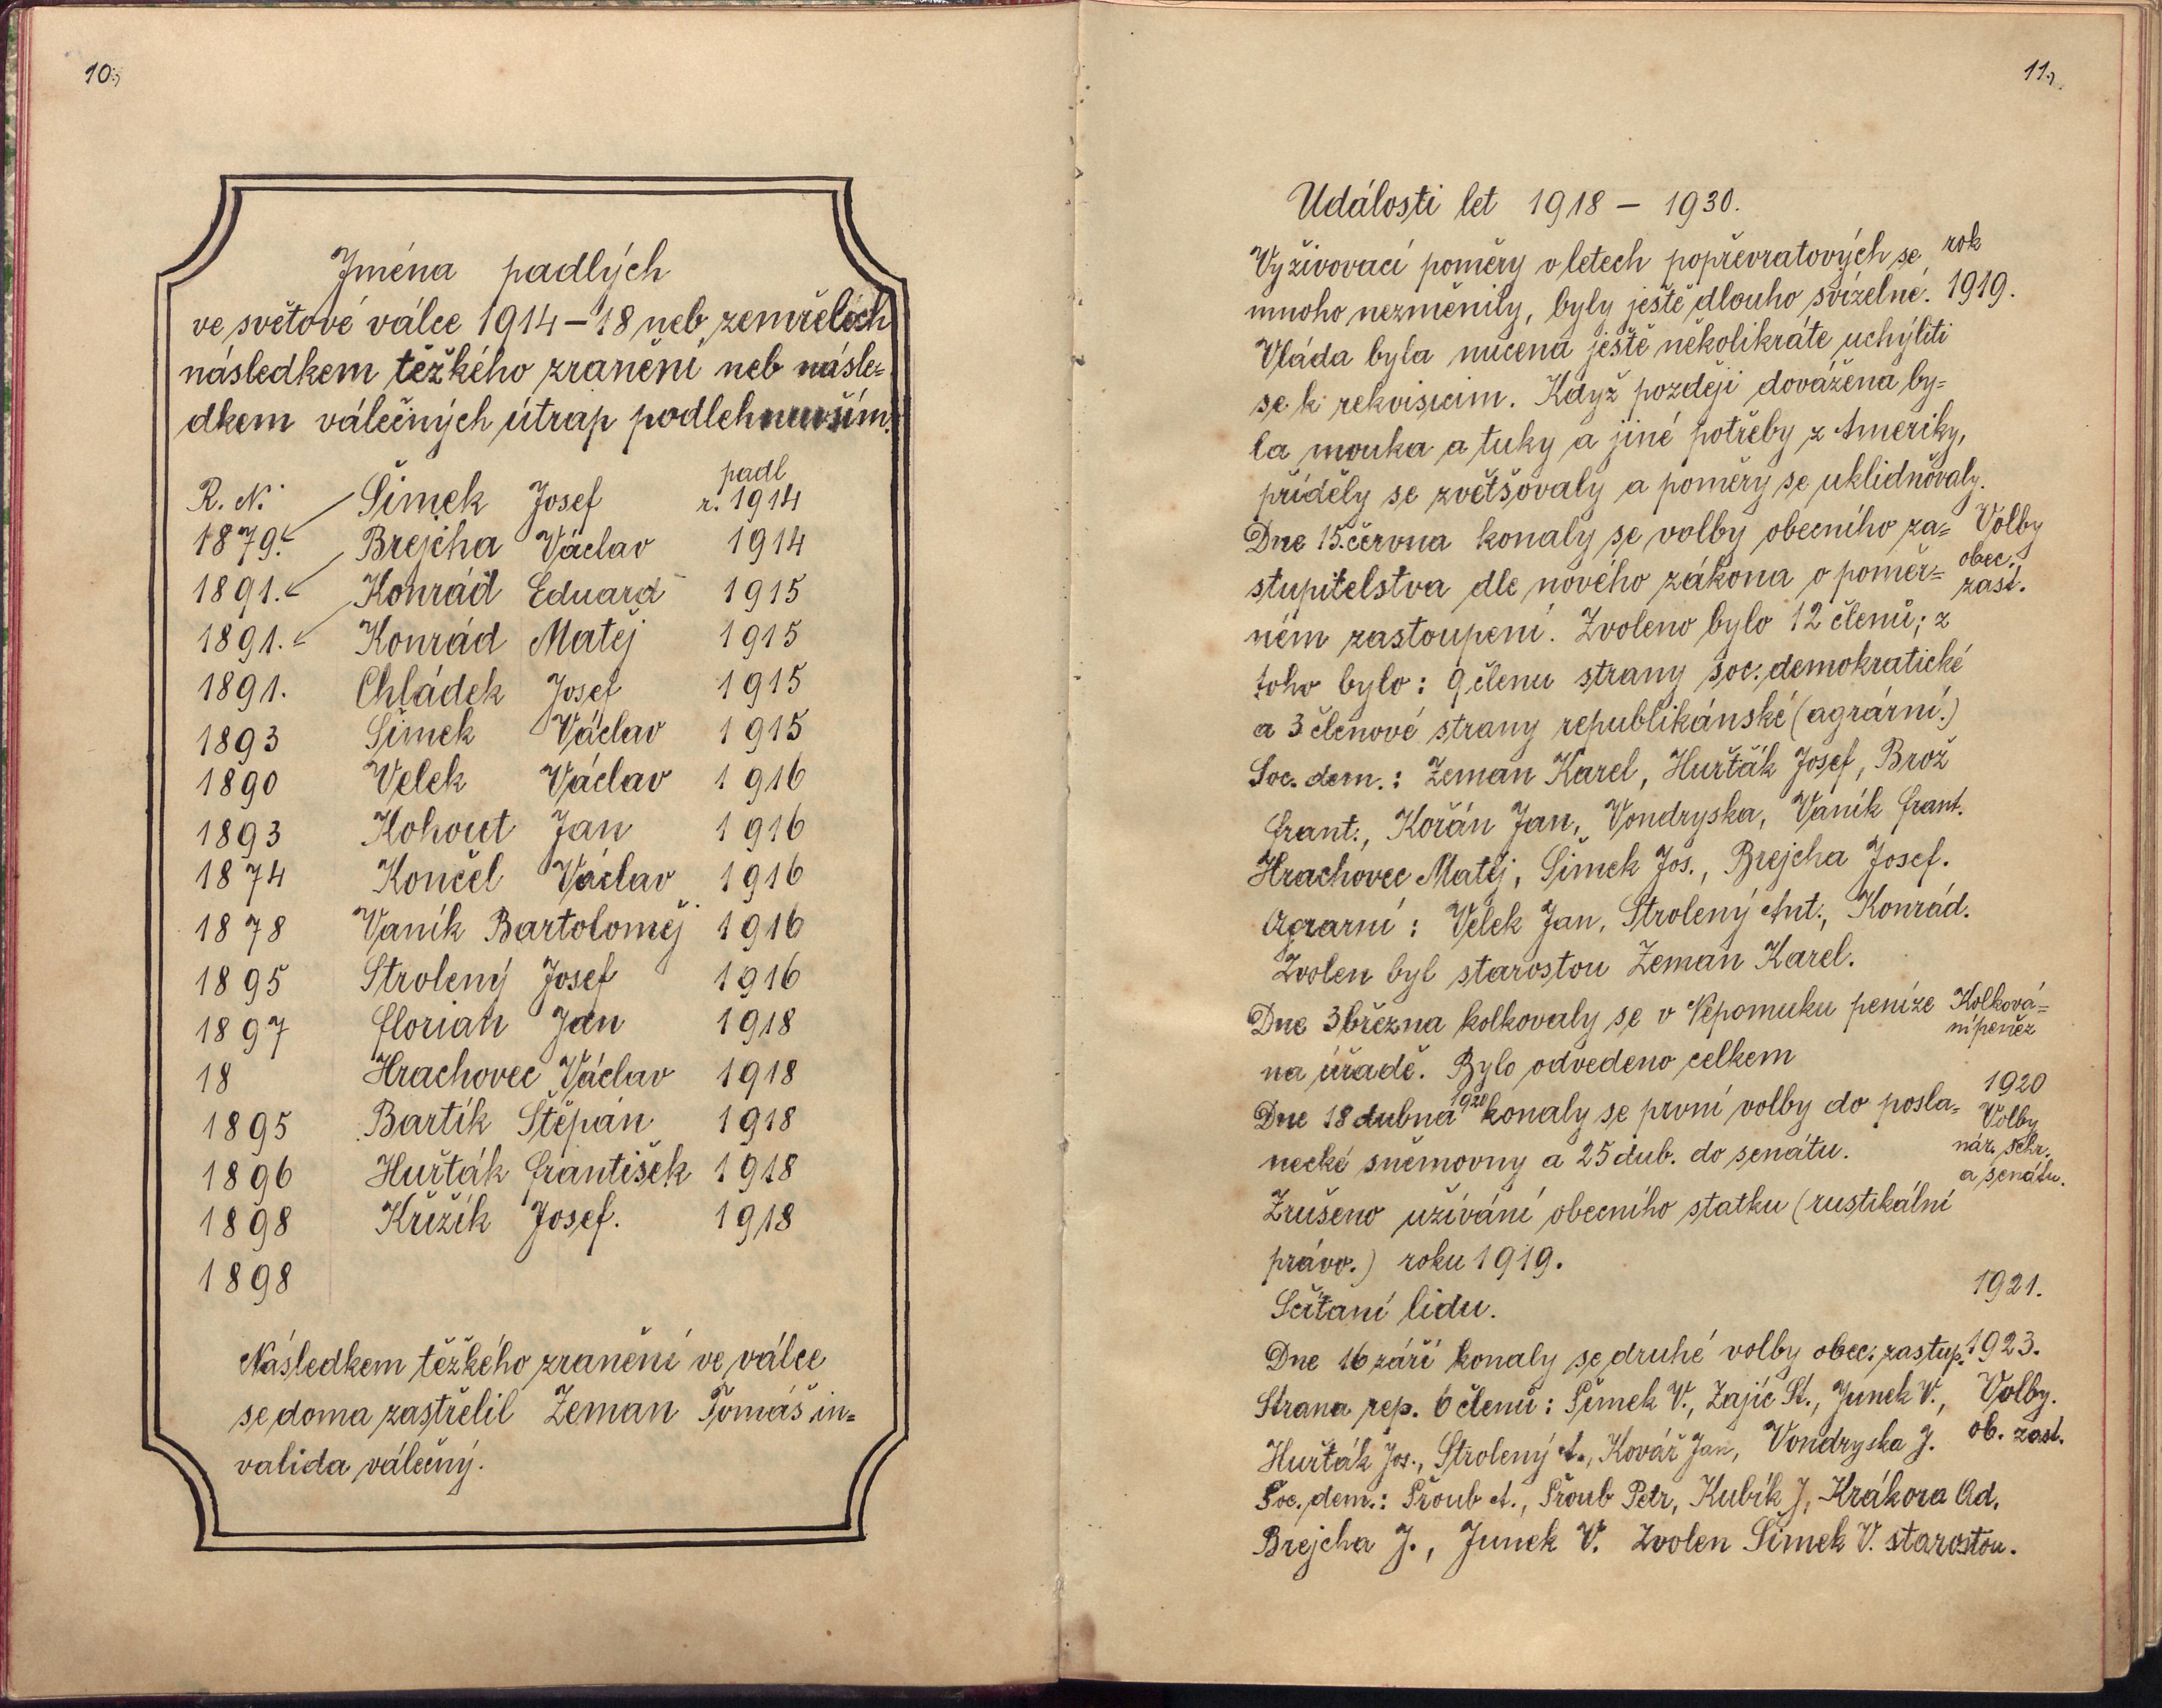 10.
Jména padlých
ve světové válce 1914-18 neb zemřelých
následkem těžkého zranění neb násle=
dkem válečných útrap podlehnuvším.
padl
R. N. Šimek Josef r. 1914
1879. Brejcha Václav 1914
1891. Konrád Eduard 1915
1891. Konrád Matěj 1915
1891. Chládek Josef 1915
1893 Šimek Václav 1915
1890 Velek Václav 1916
1893 Kohout Jan 1916
1874 Končel Václav 1916
1878 Vaník Bartoloměj 1916
1895 Strolený Josef 1916
1897 Florian Jan 1918
18 Hrachovec Václav 1918
1895 Bartík Štěpán 1918
1896 Huřták František 1918
1898 Křižík Josef. 1918
1898
Následkem těžkého zranění ve válce
se doma zastřelil Zeman Tomáš in=
valida válečný.
11.
Události let 1918 - 1930.
Vyživovací poměry v letech popřevratových se rok
mnoho nezměnily, byly ještě dlouho svízelné. 1919.
Vláda byla nucena ještě několikráte uchýliti
se k rekvisicím. Když později dovážena by=
la mouka a tuky a jiné potřeby z Ameriky,
příděly se zvětšovaly a poměry se uklidňovaly.
Dne 15. června konaly se volby obecního za= Volby
stupitelstva dle nového zákona o poměr= obec. zast.
ném zastoupení. Zvoleno bylo 12 členů; z
toho bylo: 9 členu strany soc. demokratické
a 3 členové strany republikánské (agrární.)
Soc. dem.: Zeman Karel, Huřťák Josef, Brož
Frant., Kořán Jan, Vondryska, Vaník Frant.
Hrachovec Matěj, Šimek Jos., Brejcha Josef.
Agrarní: Velek Jan, Strolený Ant., Konrád.
Zvolen byl starostou Zeman Karel.
Dne 3 března kolkovaly se v Nepomuku peníze Kolková=
na úřadě. Bylo odvedeno celkem ní peněz
1920
Dne 18 dubna 1920 konaly se první volby do posla= Volby
necké sněmovny a 25 dub. do senátu. nár. schr.
a senátu.
Zrušeno užívání obecního statku (rustikální
právo.) roku 1919.
Sčítání lidu. 1921.
Dne 16 září konaly se druhé volby obec. zastup. 1923.
Strana rep. 6 členů: Šimek V., Zajíc St., Junek V., Volby.
Huřták Jos., Strolený A., Kovář Jan, Vondryska J. ob. zast.
Soc. dem.: Šroub A., Šroub Petr, Kubík J, Krákora Ad.
Brejcha J., Junek V. Zvolen Šimek V. starostou.